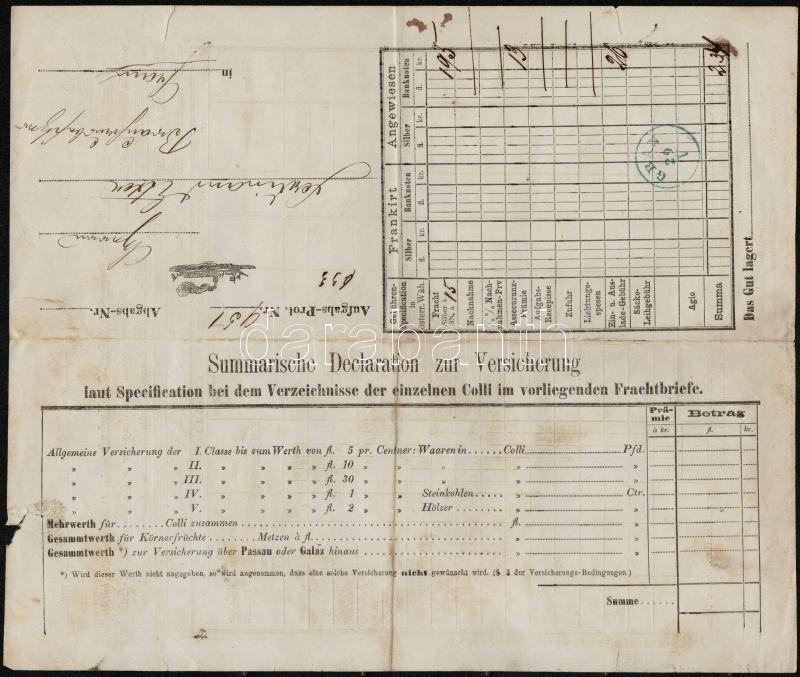 Das Gut lagert
Gebühren-
Specification
in
österr. Wäh.
Frankirt
Angewiesen
Silber
Banknoten
Silber
Banknoten
fl.
kr.
fl.
kr.
fl.
kr.
fl.
kr.
Fracht
Silber à
BN. à 15
195
Nachnahme
% Nach-
nahmen-Prv
Assecuranz-
Prämie
13
Aufgabs-
Recepisse
Zufuhr
Lichtungs-
spesen
Ein- u. Aus-
lade-Gebühr
26
Säcke-
Leihgebühr
Agio
Summa
234
GRAN
29
V
Abgabs-Nr.
Aufgabs-Prot. Nr. 951
Herrn
Ferdinand
in
darabanth
Summarische Declaration zur Versicherung
laut Specification bei dem Verzeichnisse der einzelnen Colli im vorliegenden Frachtbriefe.
Prä-
mie
Betrag
à kr.
fl.
kr.
Allgemeine Versicherung der I. Classe bis zum Werth von fl. 5 pr. Centner: Waaren in ...... Colli ...... Pfd.
„ „ „ II. „ „ „ „ „ fl. 10 „ „ „ „ „ „
„ „ „ III. „ „ „ „ „ fl. 30 „ „ „ „ „ „
„ „ „ IV. „ „ „ „ „ fl. 1 „ „ Steinkohlen ...... „ ...... Ctr.
„ „ „ V. „ „ „ „ „ fl. 2 „ „ Hölzer ...... „ ...... „
Mehrwerth für ........ Colli zusammen ........ fl. ........ „
Gesammtwerth für Körnerfrüchte ........ Metzen à fl. ........ „ ........ „
Gesammtwerth *) zur Versicherung über Passau oder Galaz hinaus ........ „ ........ „
*) Wird dieser Werth nicht angegeben, so wird angenommen, dass eine solche Versicherung nicht gewünscht wird. (§. 2 der Versicherungs-Bedingungen.)
Summe ......